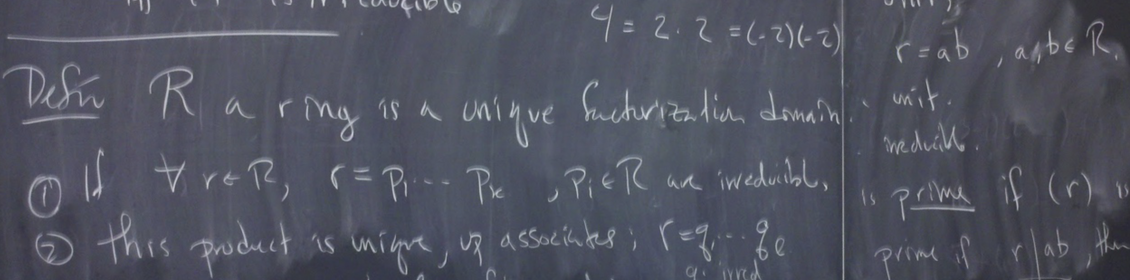 is irreducible
4 = 2 · 2 = (-2)(-2)
Defn R a ring is a unique factorization domain.
① If ∀ r ∈ R, r = p₁ ... pₖ , pᵢ ∈ R are irreducible,
② this product is unique, up associates; r = q₁ ... qₗ
qᵢ irred
r = ab , a, b ∈ R,
unit.
irreducible.
is prime if (r) is
prime if r | ab, then